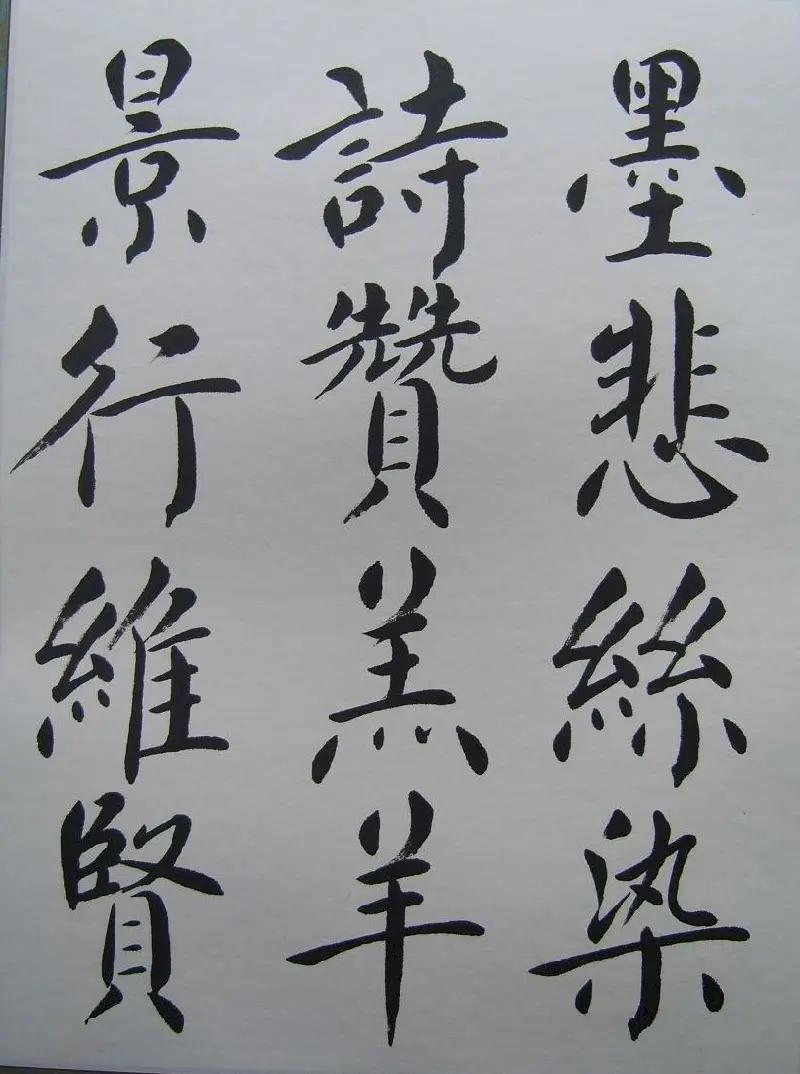 墨悲絲染
詩贊羔羊
景行維賢